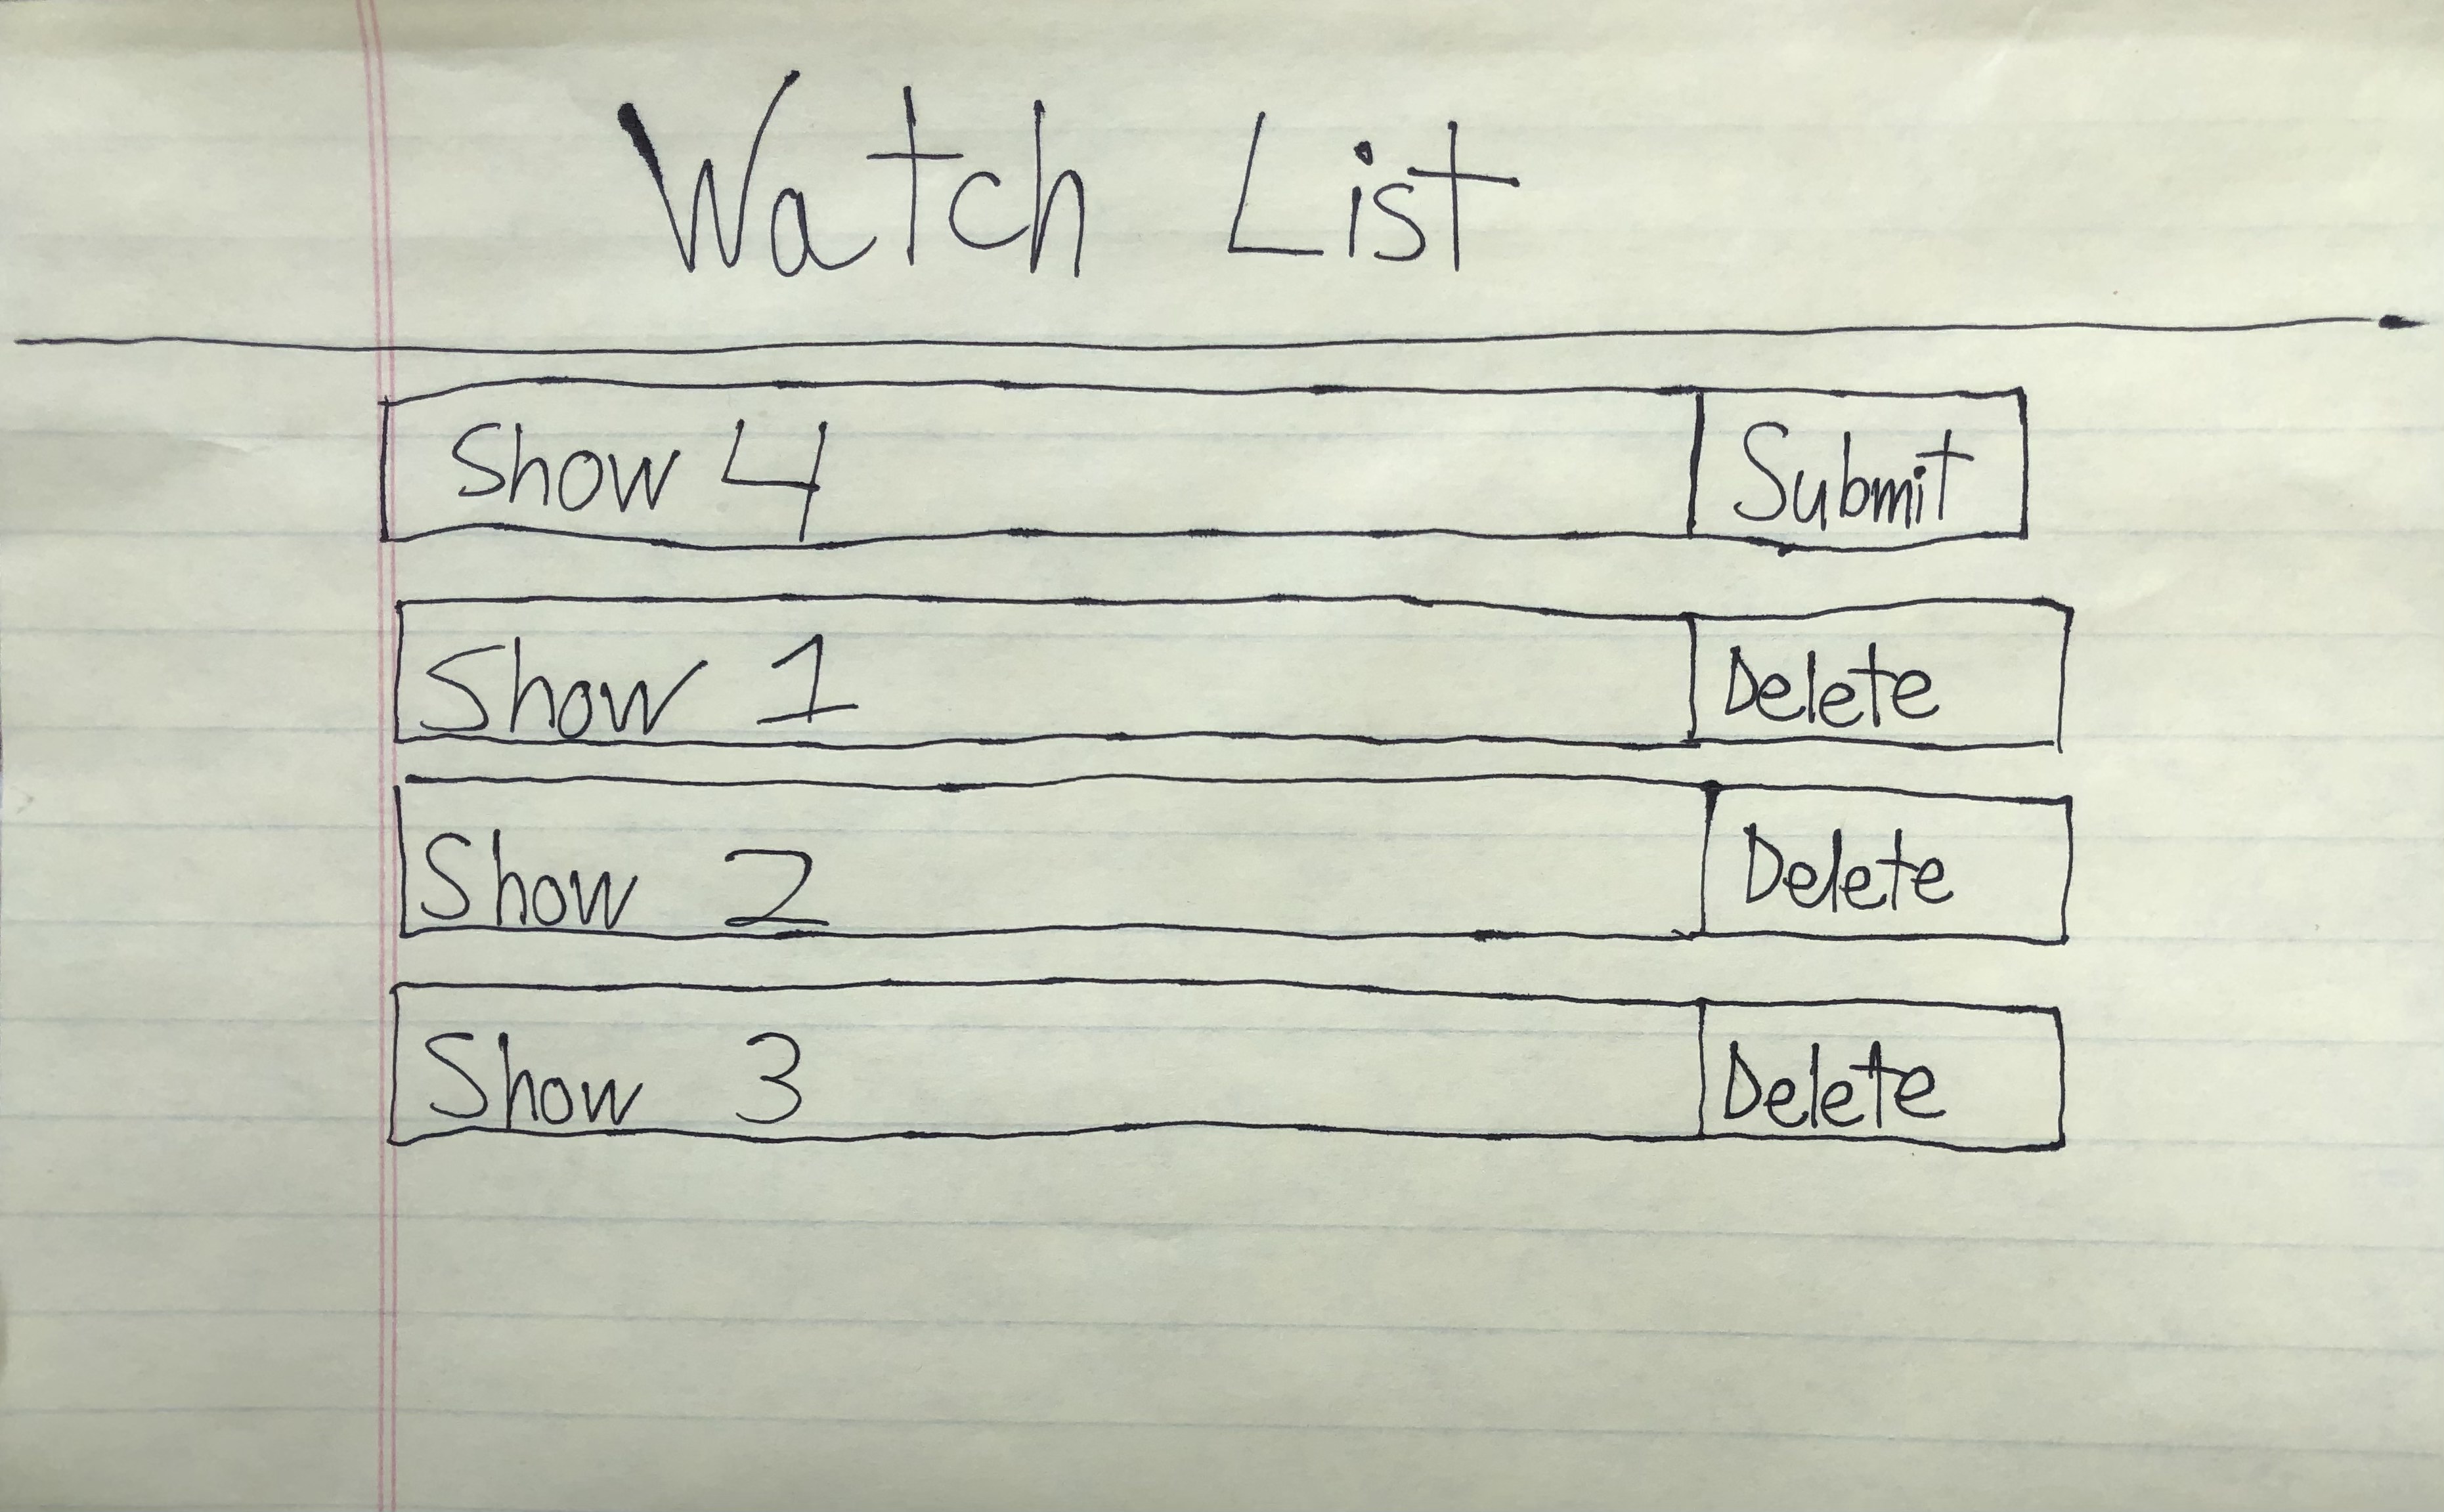 Watch List
Show 4 Submit
Show 1 Delete
Show 2 Delete
Show 3 Delete